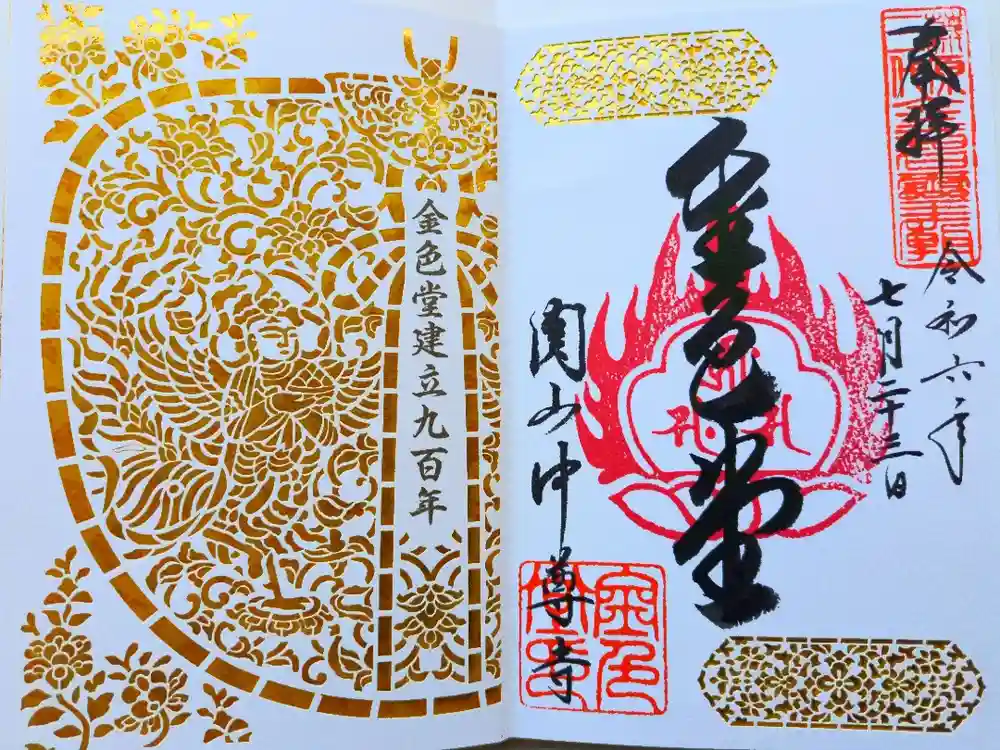 奉拝
令和六年
七月二十三日
金色堂
関山中尊寺
金色堂建立九百年